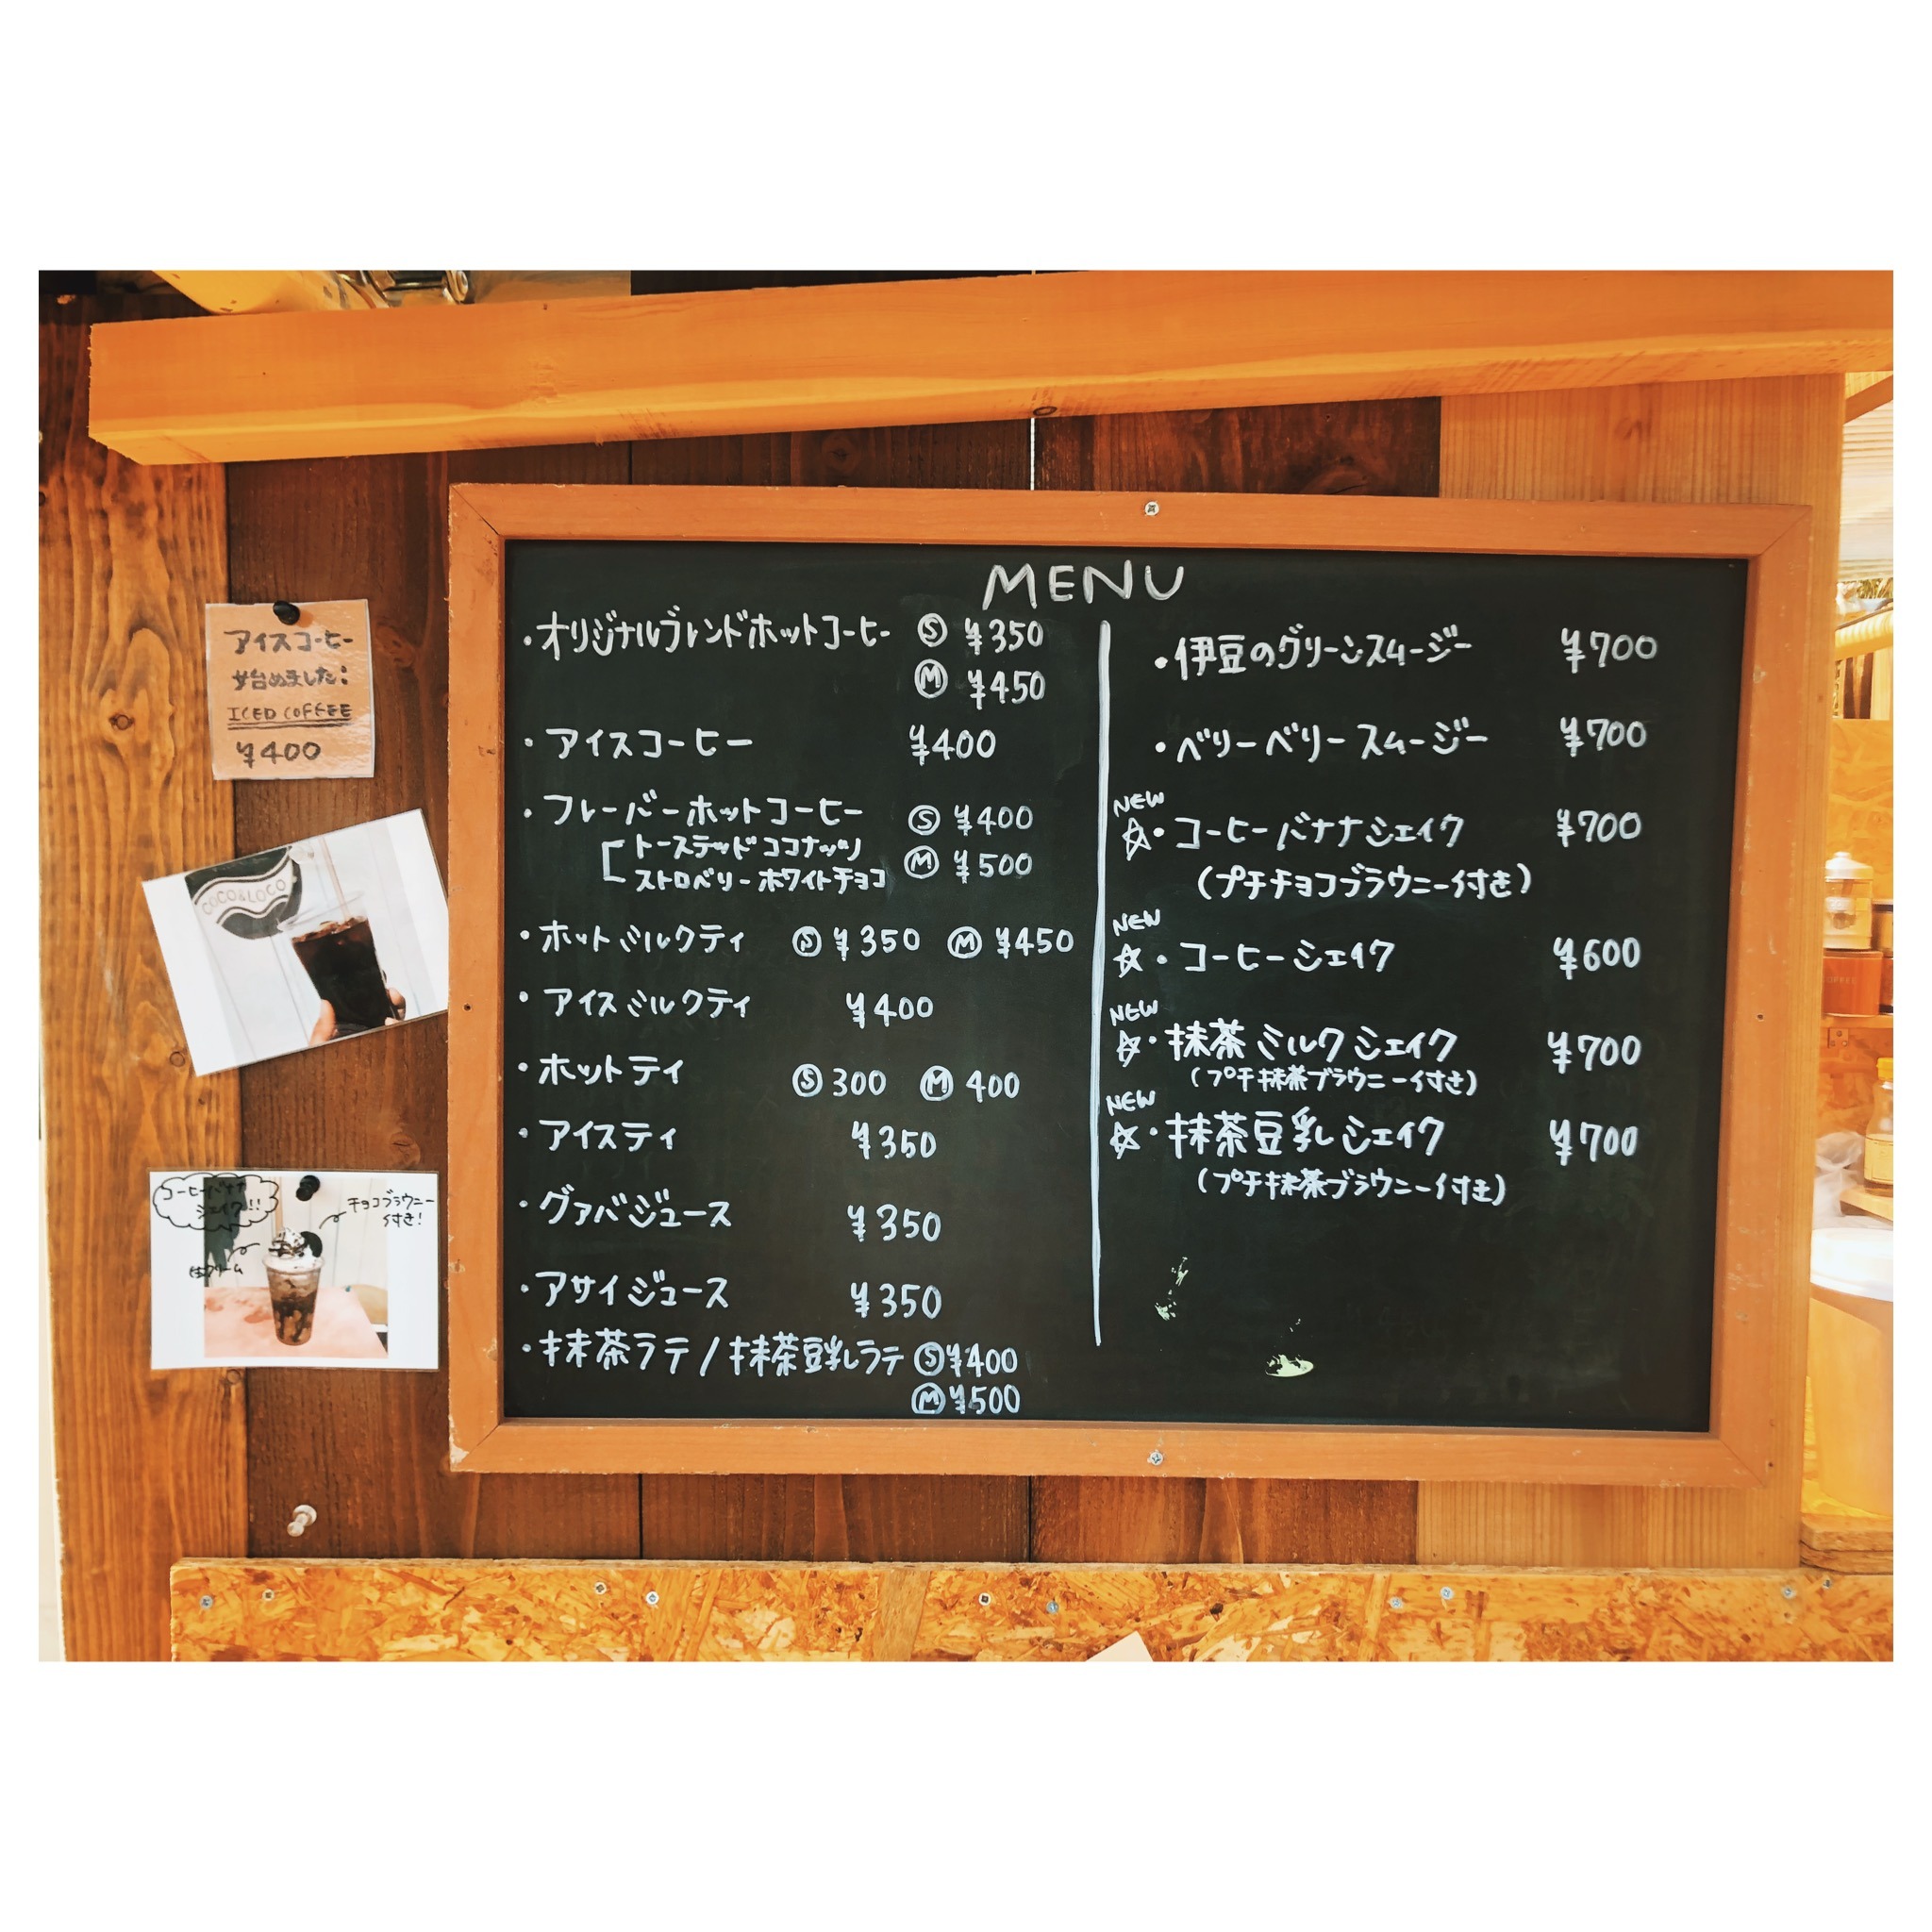 MENU
・オリジナルブレンドホットコーヒー Ⓢ ¥350
Ⓜ ¥450
・アイスコーヒー ¥400
・フレーバーホットコーヒー Ⓢ ¥400
トーステッドココナッツ Ⓜ ¥500
ストロベリーホワイトチョコ
・ホットミルクティ Ⓢ ¥350 Ⓜ ¥450
・アイスミルクティ ¥400
・ホットティ Ⓢ 300 Ⓜ 400
・アイスティ ¥350
・グァバジュース ¥350
・アサイジュース ¥350
・抹茶ラテ/抹茶豆乳ラテ Ⓢ¥400
Ⓜ¥500
・伊豆のグリーンスムージー ¥700
・ベリーベリースムージー ¥700
NEW
☆・コーヒーバナナシェイク ¥700
(プチチョコブラウニー付き)
NEW
☆・コーヒーシェイク ¥600
NEW
☆・抹茶ミルクシェイク ¥700
(プチ抹茶ブラウニー付き)
NEW
☆・抹茶豆乳シェイク ¥700
(プチ抹茶ブラウニー付き)
アイスコーヒー
始めました:
ICED COFFEE
¥400
COCO&LOCO
コーヒーバナナ
シェイク!!
チョコブラウニー
付き!
COFFEE